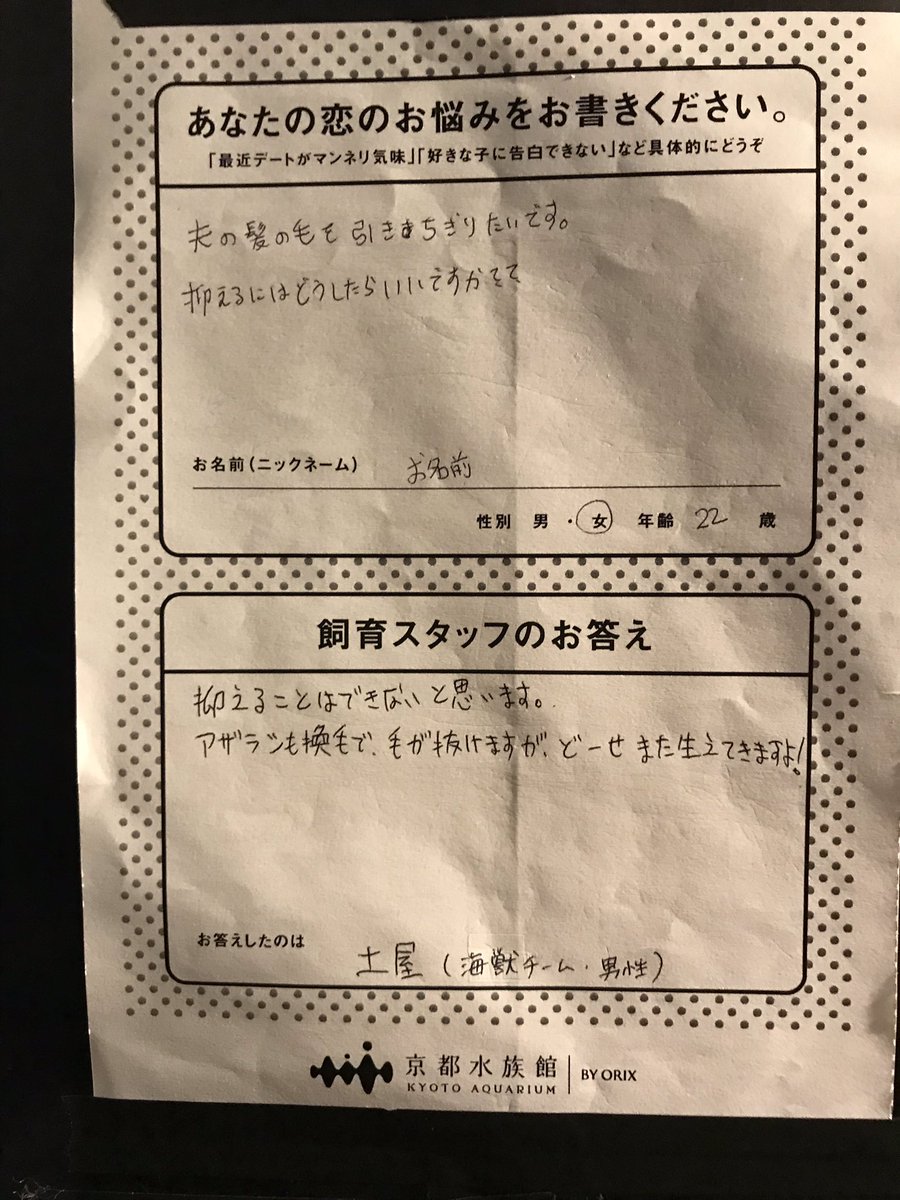 あなたの恋のお悩みをお書きください。
「最近デートがマンネリ気味」「好きな子に告白できない」など具体的にどうぞ
夫の髪の毛を引きちぎりたいです。
抑えるにはどうしたらいいですか
お名前(ニックネーム) お名前
性別 男・女 年齢 22 歳
飼育スタッフのお答え
抑えることはできないと思います。
アザラシも換毛で、毛が抜けますが、どーせまた生えてきますよ!
お答えしたのは
土屋(海獣チーム・男性)
京都水族館
KYOTO AQUARIUM
BY ORIX